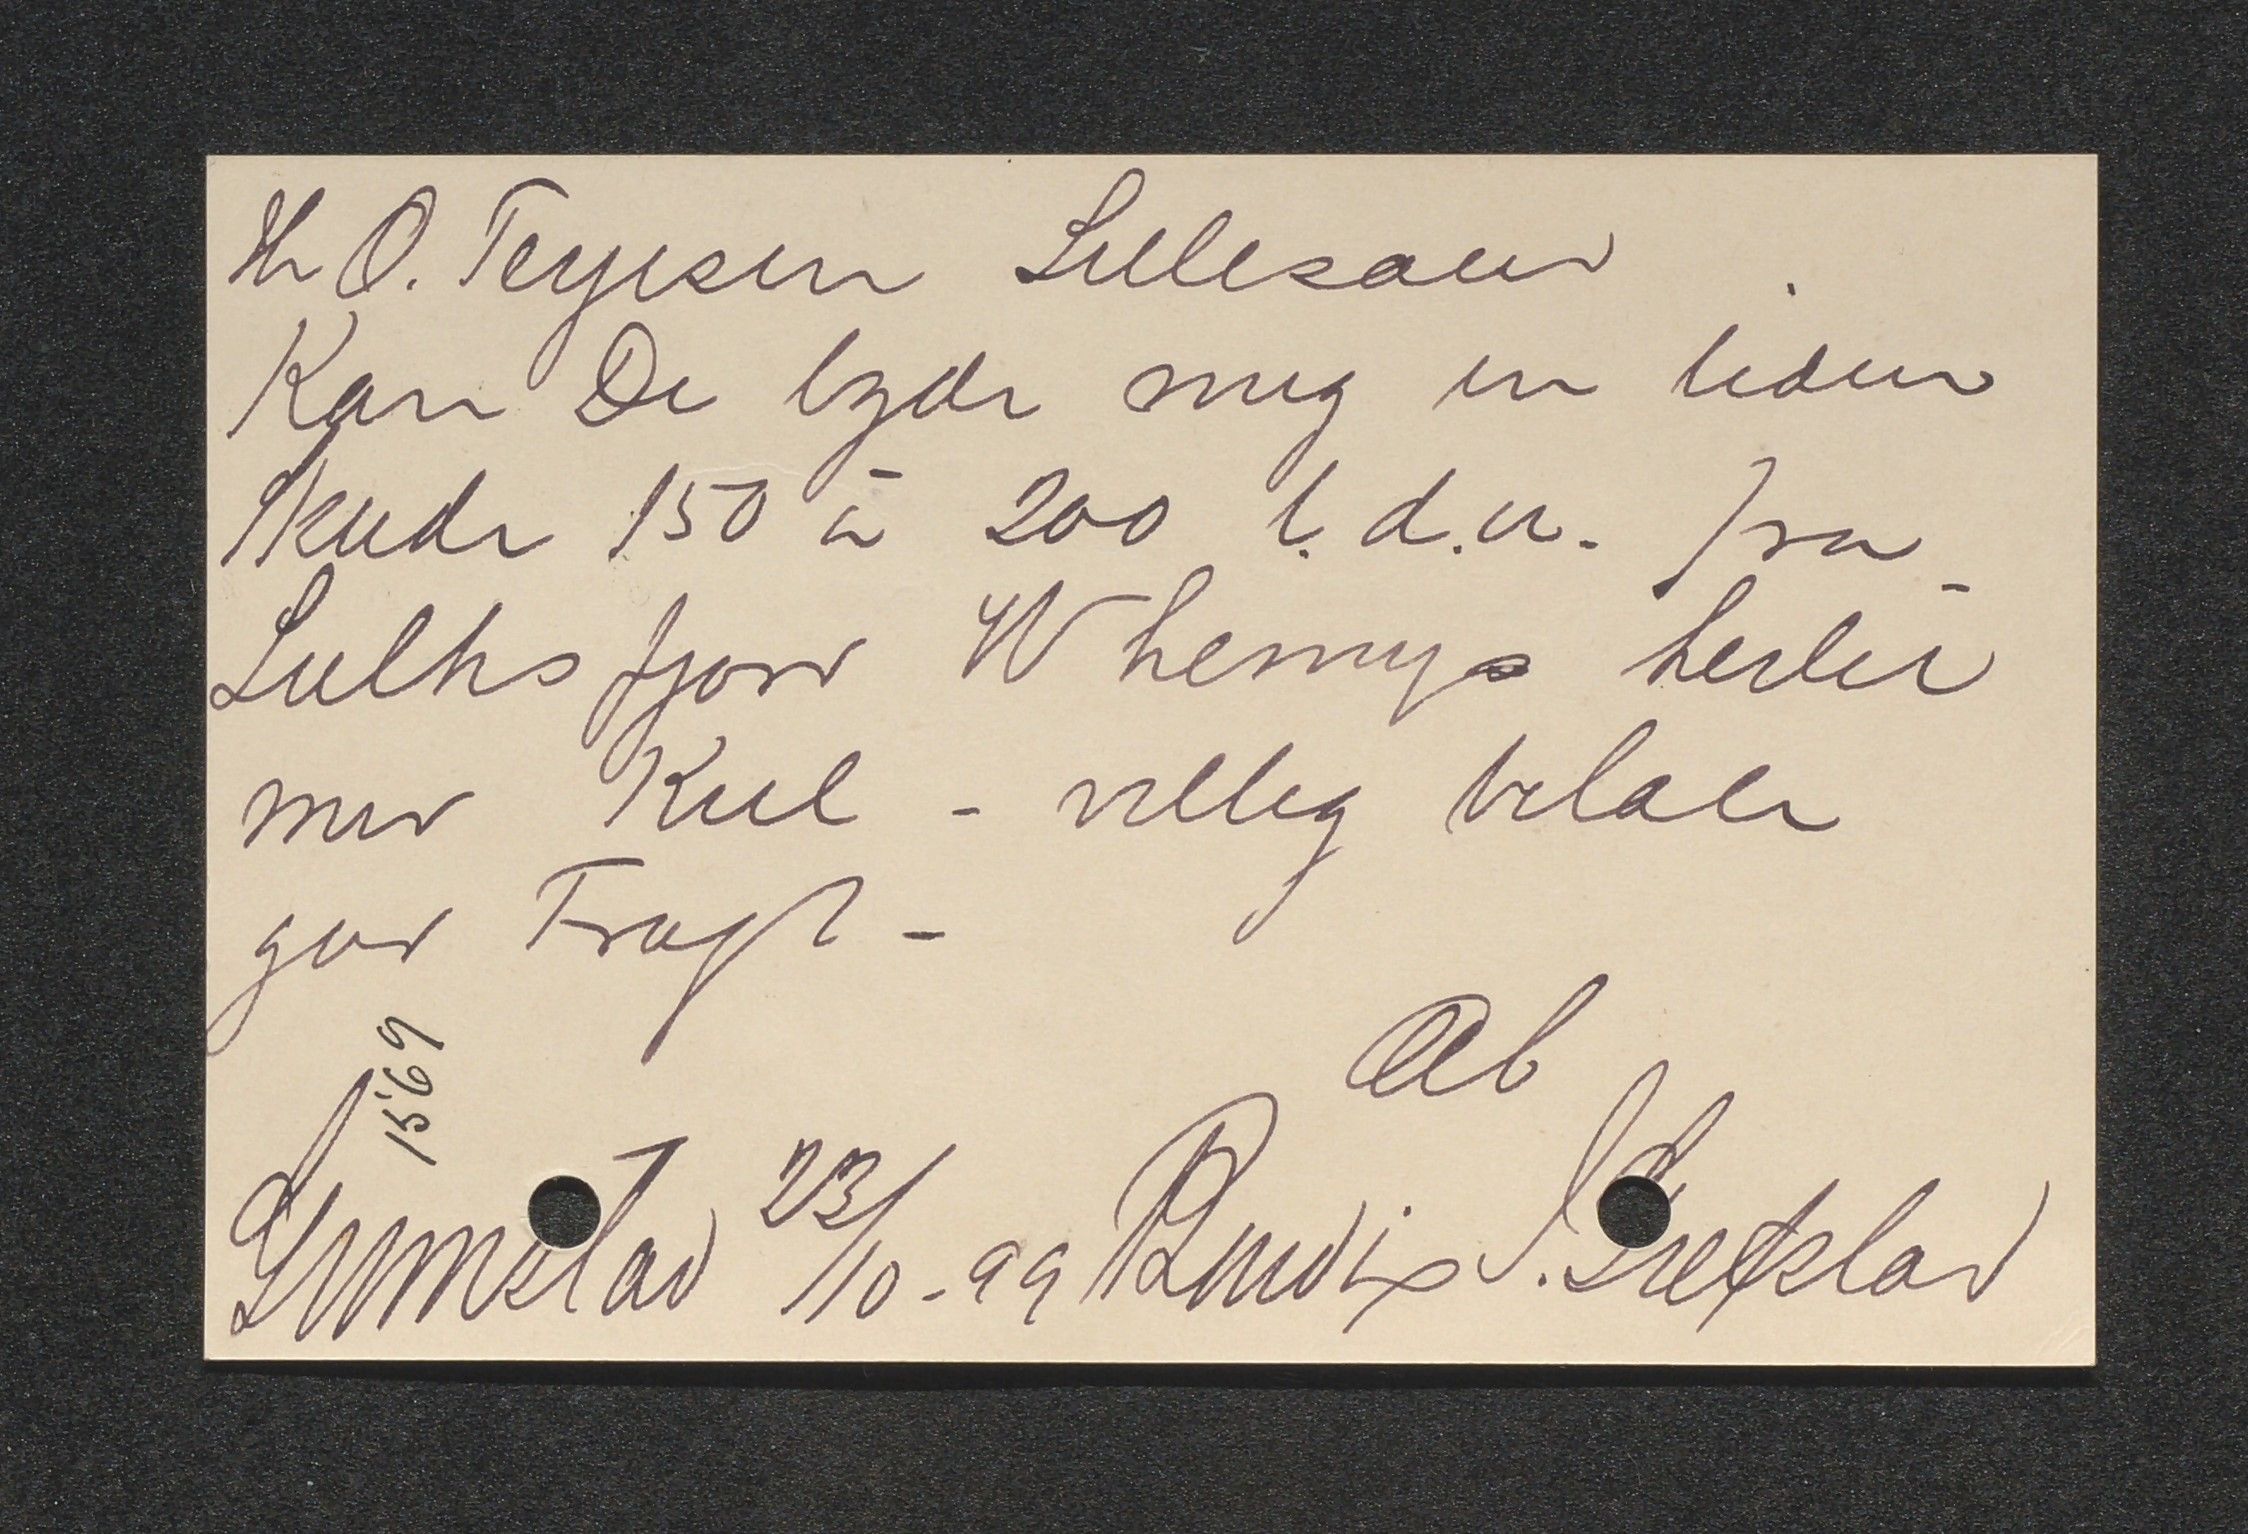 Hr O. Terjesen Lillesand
Kan De byde mig en liden
Skude 150 à 200 t.d.w. fra
Leiths fjord Whemys hertil
med Kul - villig betale
god Fragt -
Ab
1569
Grimstad 23/10-99 S.